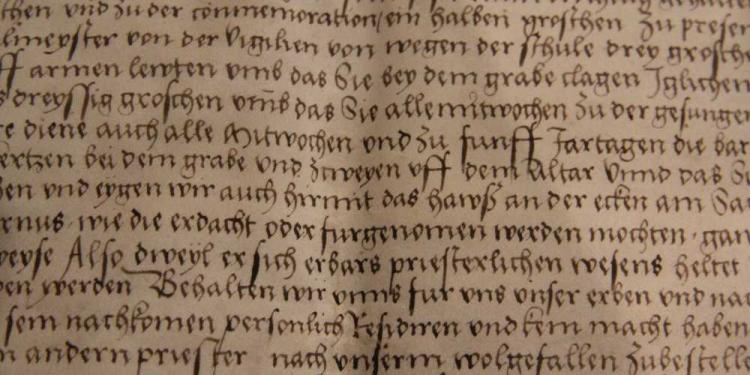 chen vnd zu der commemoration ein halben groschen zu preser
lmeyster von der Vigilien von wegen der schule drey grosche
ff armen lewten vmb das Sie bey dem grabe clagen Jglichen
s dreyssig groschen vmb das Sie alle mitwochen zu der gesungen
re diene auch alle Mitwochen vnd zu funff Jartagen die bar
ertzen bei dem grabe vnd zweyen vff dem Altar Vnnd das S
en vnd eygen wir auch hirmit das hawß an der ecken am Sa
rnus wie die erdacht oder furgenomen werden mochten gan
weyse Also dweyl er sich erbars priesterlichen wesens heltet
en werden Behalten wir vnns fur vns vnser erben vnd na
sein nachkomen personlich Residiren vnd kein macht haben
n andern priester nach vnserm wolgefallen zubestelle